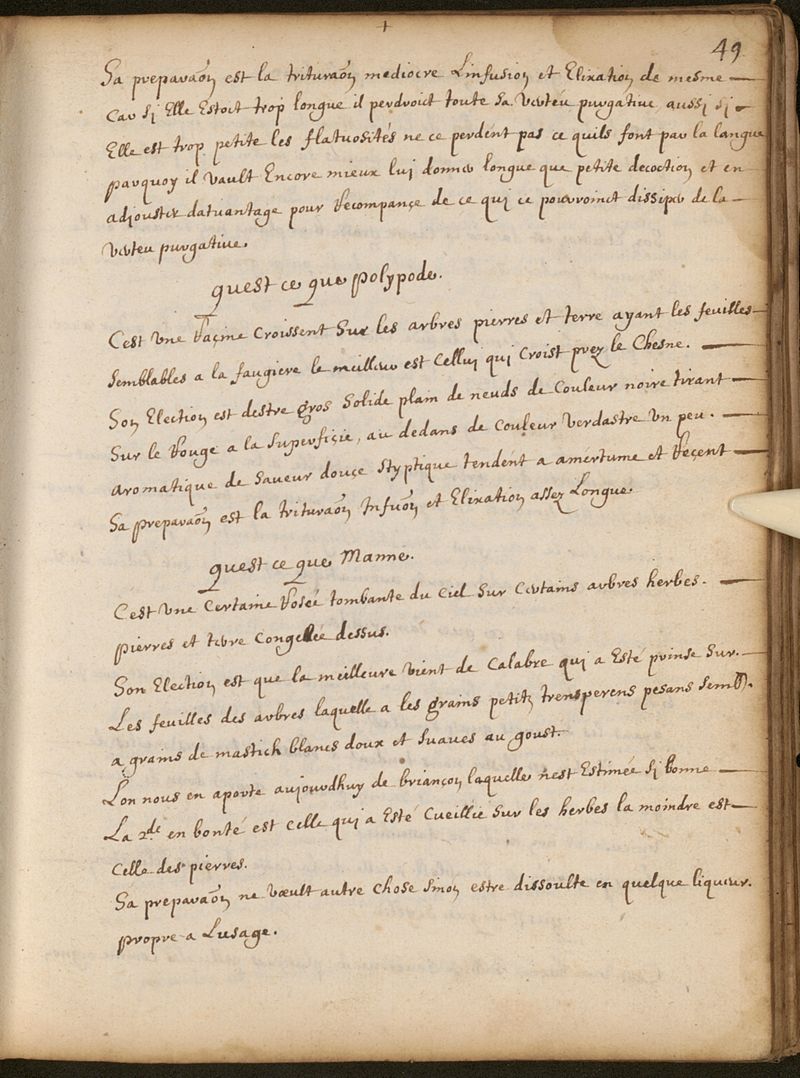 +
49
Sa preparaõn est la trituraõn mediocre Linfusion et Elixation de mesme
Car sj Elle Estoit trop longue il perdroict toute sa verteu purgative aussj sj
Elle est trop petite les flatuosités ne ce perdent pas ce quils font par la langue
parquoy il vault Encore mieux luj donner longue que petite decoction et en
adjouster datuantage pour Recompançe de ce quj ce pouvroinct dissiper de la
verteu purgative.
quest ce que polypode.
Cest une Raçine Croissent Sur les arbres pierres et terre ayant les feuilles
semblables a la faugiere le meilleur est Celluj quj Croist prez le Chesne.
Son Election est destre gros Solide plain de neuds de Couleur noire tirant
Sur le Rouge a la Superfiçie, au dedans de Couleur verdastre un peu.
aromatique de Saveur douçe Styptique tendent a amertume et Reçent
Sa preparaõn est la trituraõn Infuõn et Elixation assez Longue
quest ce que Manne.
Cest une Certaine Roseé tombante du Ciel Sur Certains arbres herbes.
pierres et terre Congelée dessus.
Son Election est que la meilleure vient de Calabre quj a Esté prinse Sur.
Les feuilles des arbres laquelle a les grains petitz transperens pesans Sembl.
a grains de mastich blancs doux et Suaves au goust.
Lon nous en aporte aujourdhuy de briançon laquelle nest Estimée Sj bonne
La 2de en bonté est Celle quj a Esté Cueillie Sur les herbes la moindre est
Celle des pierres.
Sa preparaõn ne vœult autre Chose Sinon estre dissoulte en quelque liqueur.
propre a Lusage.